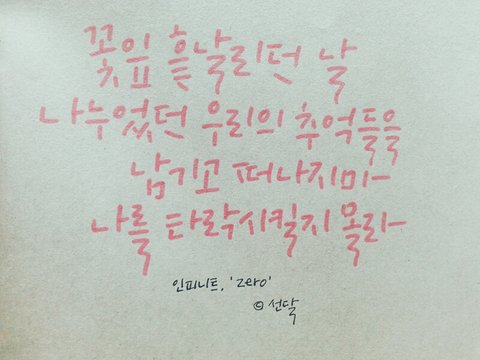 꽃잎 흩날리던 날
나누었던 우리의 추억들을
남기고 떠나지마-
나를 타락시킬지 몰라-
인피니트, 'zero'
© 선달